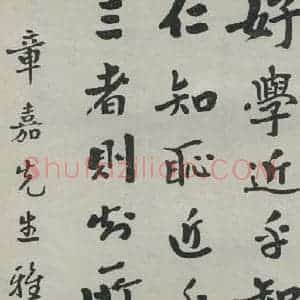 好學近乎知
仁知恥近乎
三者則知所
章嘉先生雅
ShufaZilian.COM